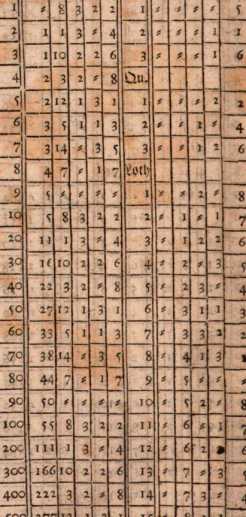 ⸗ 8 3 2 1 ⸗ ⸗ ⸗
2 1 1 3 ⸗ 4 2 ⸗ ⸗ ⸗ 1
3 1 10 2 2 6 3 ⸗ ⸗ ⸗ 1
4 2 3 2 ⸗ 8 Qu.
5 2 12 1 3 1 1 ⸗ ⸗ ⸗ 2
6 3 5 1 1 3 2 ⸗ ⸗ 1 ⸗
7 3 14 ⸗ 3 5 3 ⸗ ⸗ 1 2
8 4 7 ⸗ 1 7 Loth
9 5 ⸗ ⸗ ⸗ ⸗ 1 ⸗ ⸗ 2 ⸗
10 5 8 3 2 2 2 ⸗ 1 ⸗ 1
20 11 1 3 ⸗ 4 3 ⸗ 1 2 2
30 16 10 2 2 6 4 ⸗ 2 ⸗ 3
40 22 3 2 ⸗ 8 5 ⸗ 2 3 ⸗
50 27 12 1 3 1 6 ⸗ 3 1 1
60 33 5 1 1 3 7 ⸗ 3 3 2
70 38 14 ⸗ 3 5 8 ⸗ 4 1 3
80 44 7 ⸗ 1 7 9 ⸗ 5 ⸗ ⸗
90 50 ⸗ ⸗ ⸗ ⸗ 10 ⸗ 5 2 ⸗
100 55 8 3 2 2 11 ⸗ 6 ⸗ 1
200 111 1 3 ⸗ 4 12 ⸗ 6 2
300 166 10 2 2 6 13 ⸗ 7 ⸗ 3
400 222 3 2 ⸗ 8 14 ⸗ 7 3 ⸗